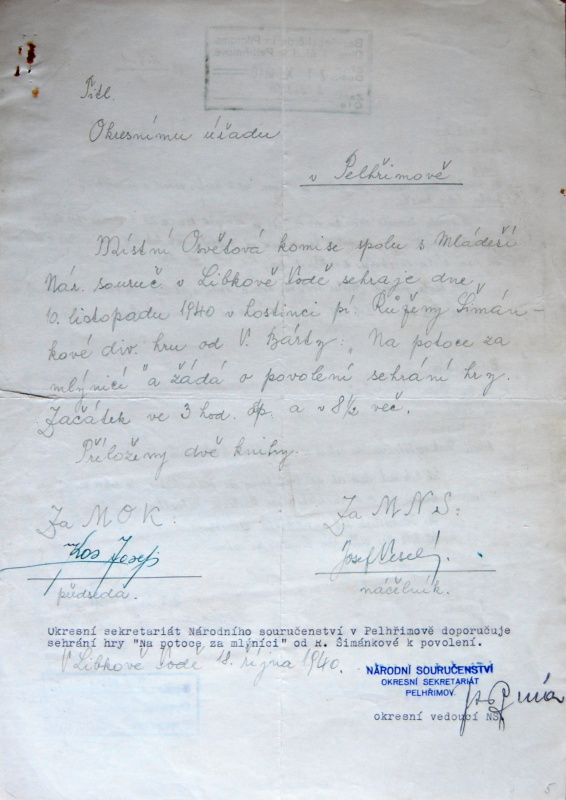 Titl.
Okresnímu úřadu
v Pelhřimově
Místní Osvětová komise spolu s Mládeží
Nár. souruč. v Libkově Vodě sehraje dne
10. listopadu 1940 v hostinci pí. Růženy Šimán-
kové div. hru od V. Bárty: "Na potoce za
mlýnicí" a žádá o povolení sehrání hry.
Začátek ve 3 hod. odp. a v 8½ več.
Přiloženy dvě knihy.
Za M O K:
Za M N S:
Kos Josef
Josef Veselý.
předseda.
náčelník.
Okresní sekretariát Národního souručenství v Pelhřimově doporučuje
sehrání hry "Na potoce za mlýnící" od R. Šimánkové k povolení.
V Libkově Vodě 18. října 1940.
NÁRODNÍ SOURUČENSTVÍ
OKRESNÍ SEKRETARIÁT
PELHŘIMOV.
okresní vedoucí NS
5